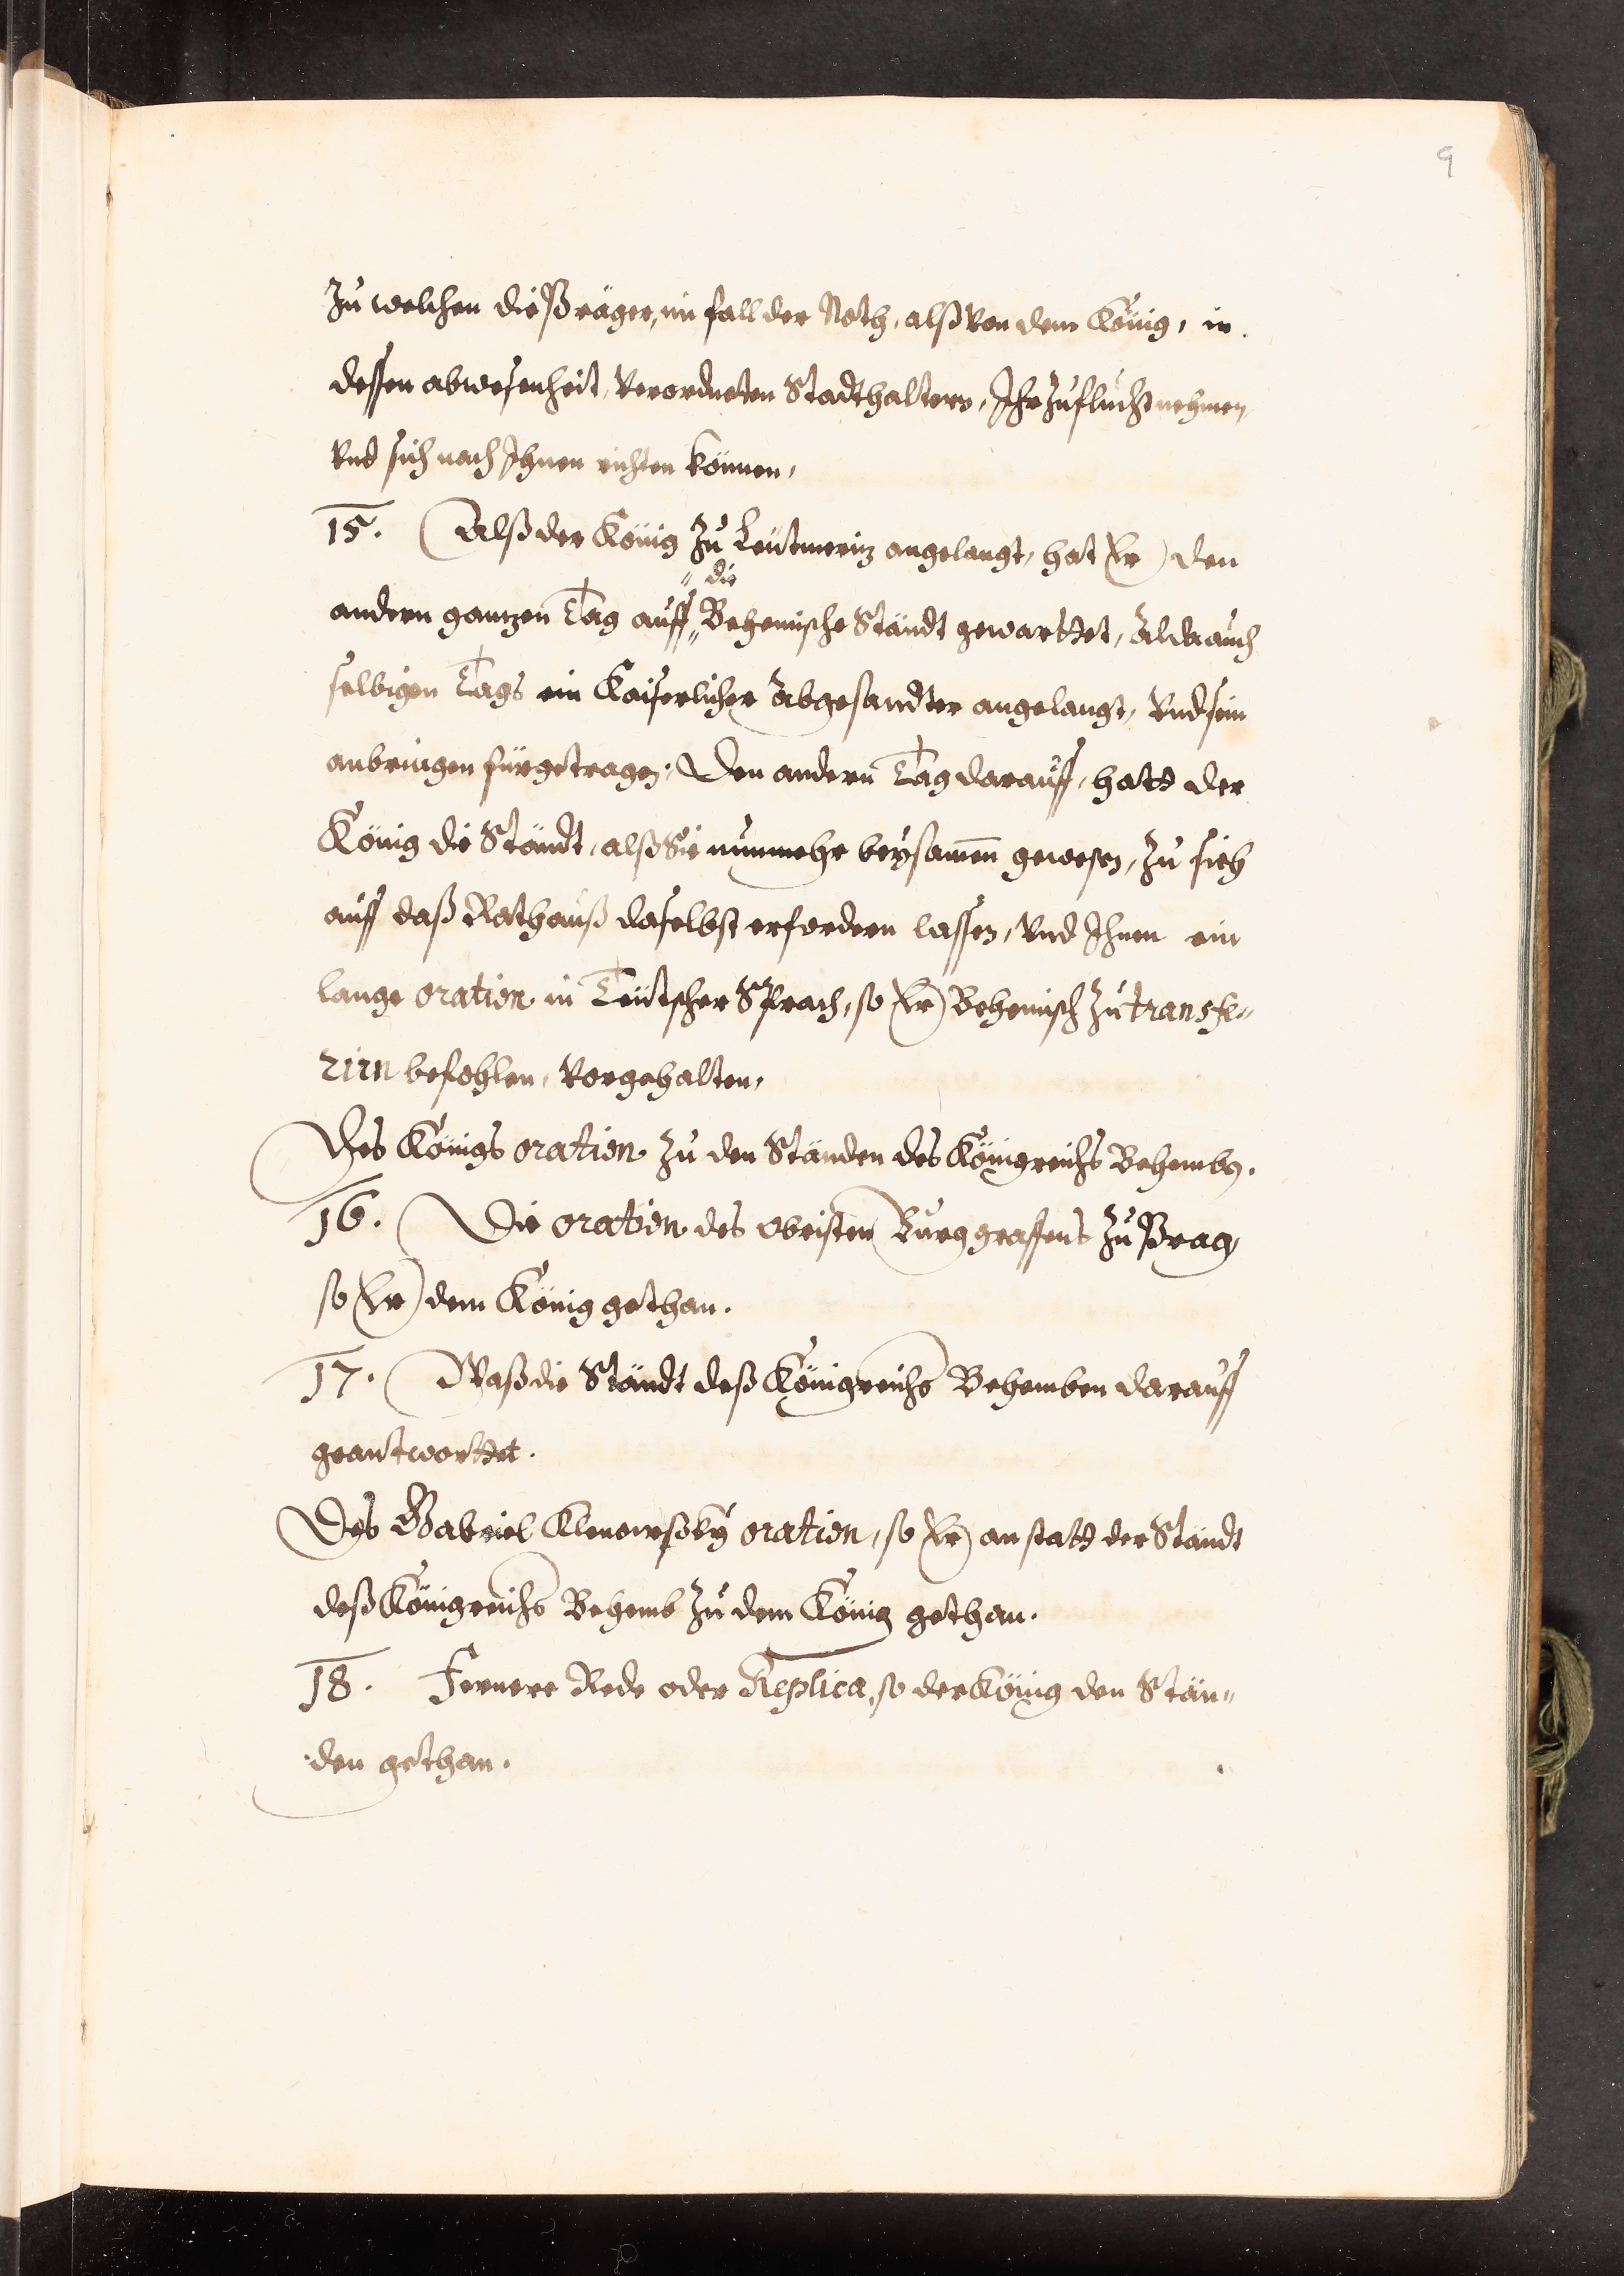 9
Zu welchen die Präger, im fall der Noth, alß von dem König, in
dessen abwesenheit, verordneten Stadthaltern, Ihr Zuflucht nehmen,
vnd sich nach Ihnen richten können,
15. Alß der König Zu Leutmeriz angelangt, hat Er den
andern gantzen Tag auff die Behemische Ständt gewarttet, Alda auch
selbigen Tags ein Kaiserlicher Abgesandter angelangt, vnd sein
anbringen fürgetragen, Den andern Tag darauff, hatt der
König die Ständt, alß Sie nunmehr beysamen gewesen, Zu sich
auff daß Rathauß daselbst erfordern lassen, vnd Ihnen ein
lange oration in Teütscher Sprach, so Er Behemisch Zu transfe-
rirn befohlen, vorgehalten,
Des Königs oration Zu den Ständen des Königreichs Behemb.
16. Die oration des obristen Burggraffens Zu Prag,
so Er dem König gethan.
17. Waß die Ständt deß Königreichs Behemben darauff
geantworttet.
Des Gabriel Klenowßky oration, so Er anstatt der Ständt
deß Königreichs Behemb Zu dem König gethan.
18. Fernere Rede oder Replica, so der König den Stän-
den gethan.